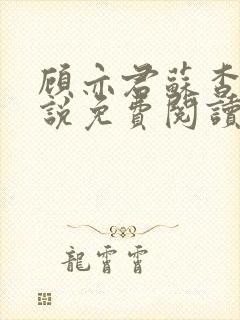 顾亦君蘇杳
說免費閱讀
龍霄霄